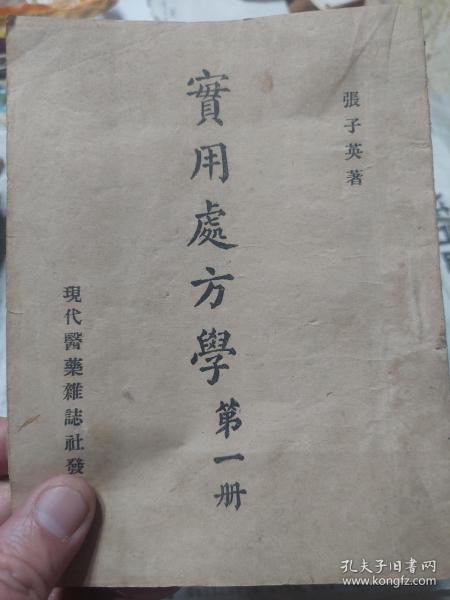 張子英著
實用處方學第一册
現代醫藥雜誌社發
孔夫子旧书网
www.kongfz.com